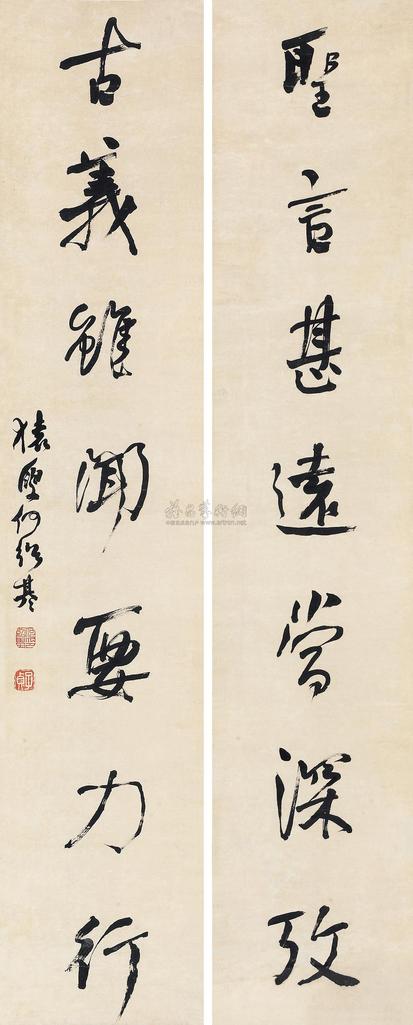 聖言甚遠當深攷
古義雖聞要力行
猿叟何紹基
雅昌藝術網
www.artron.net